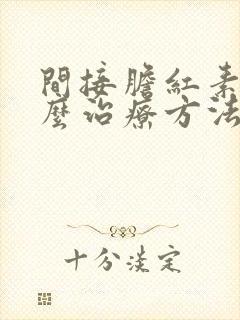 間接膽紅素
麼治療方法
十分淡定